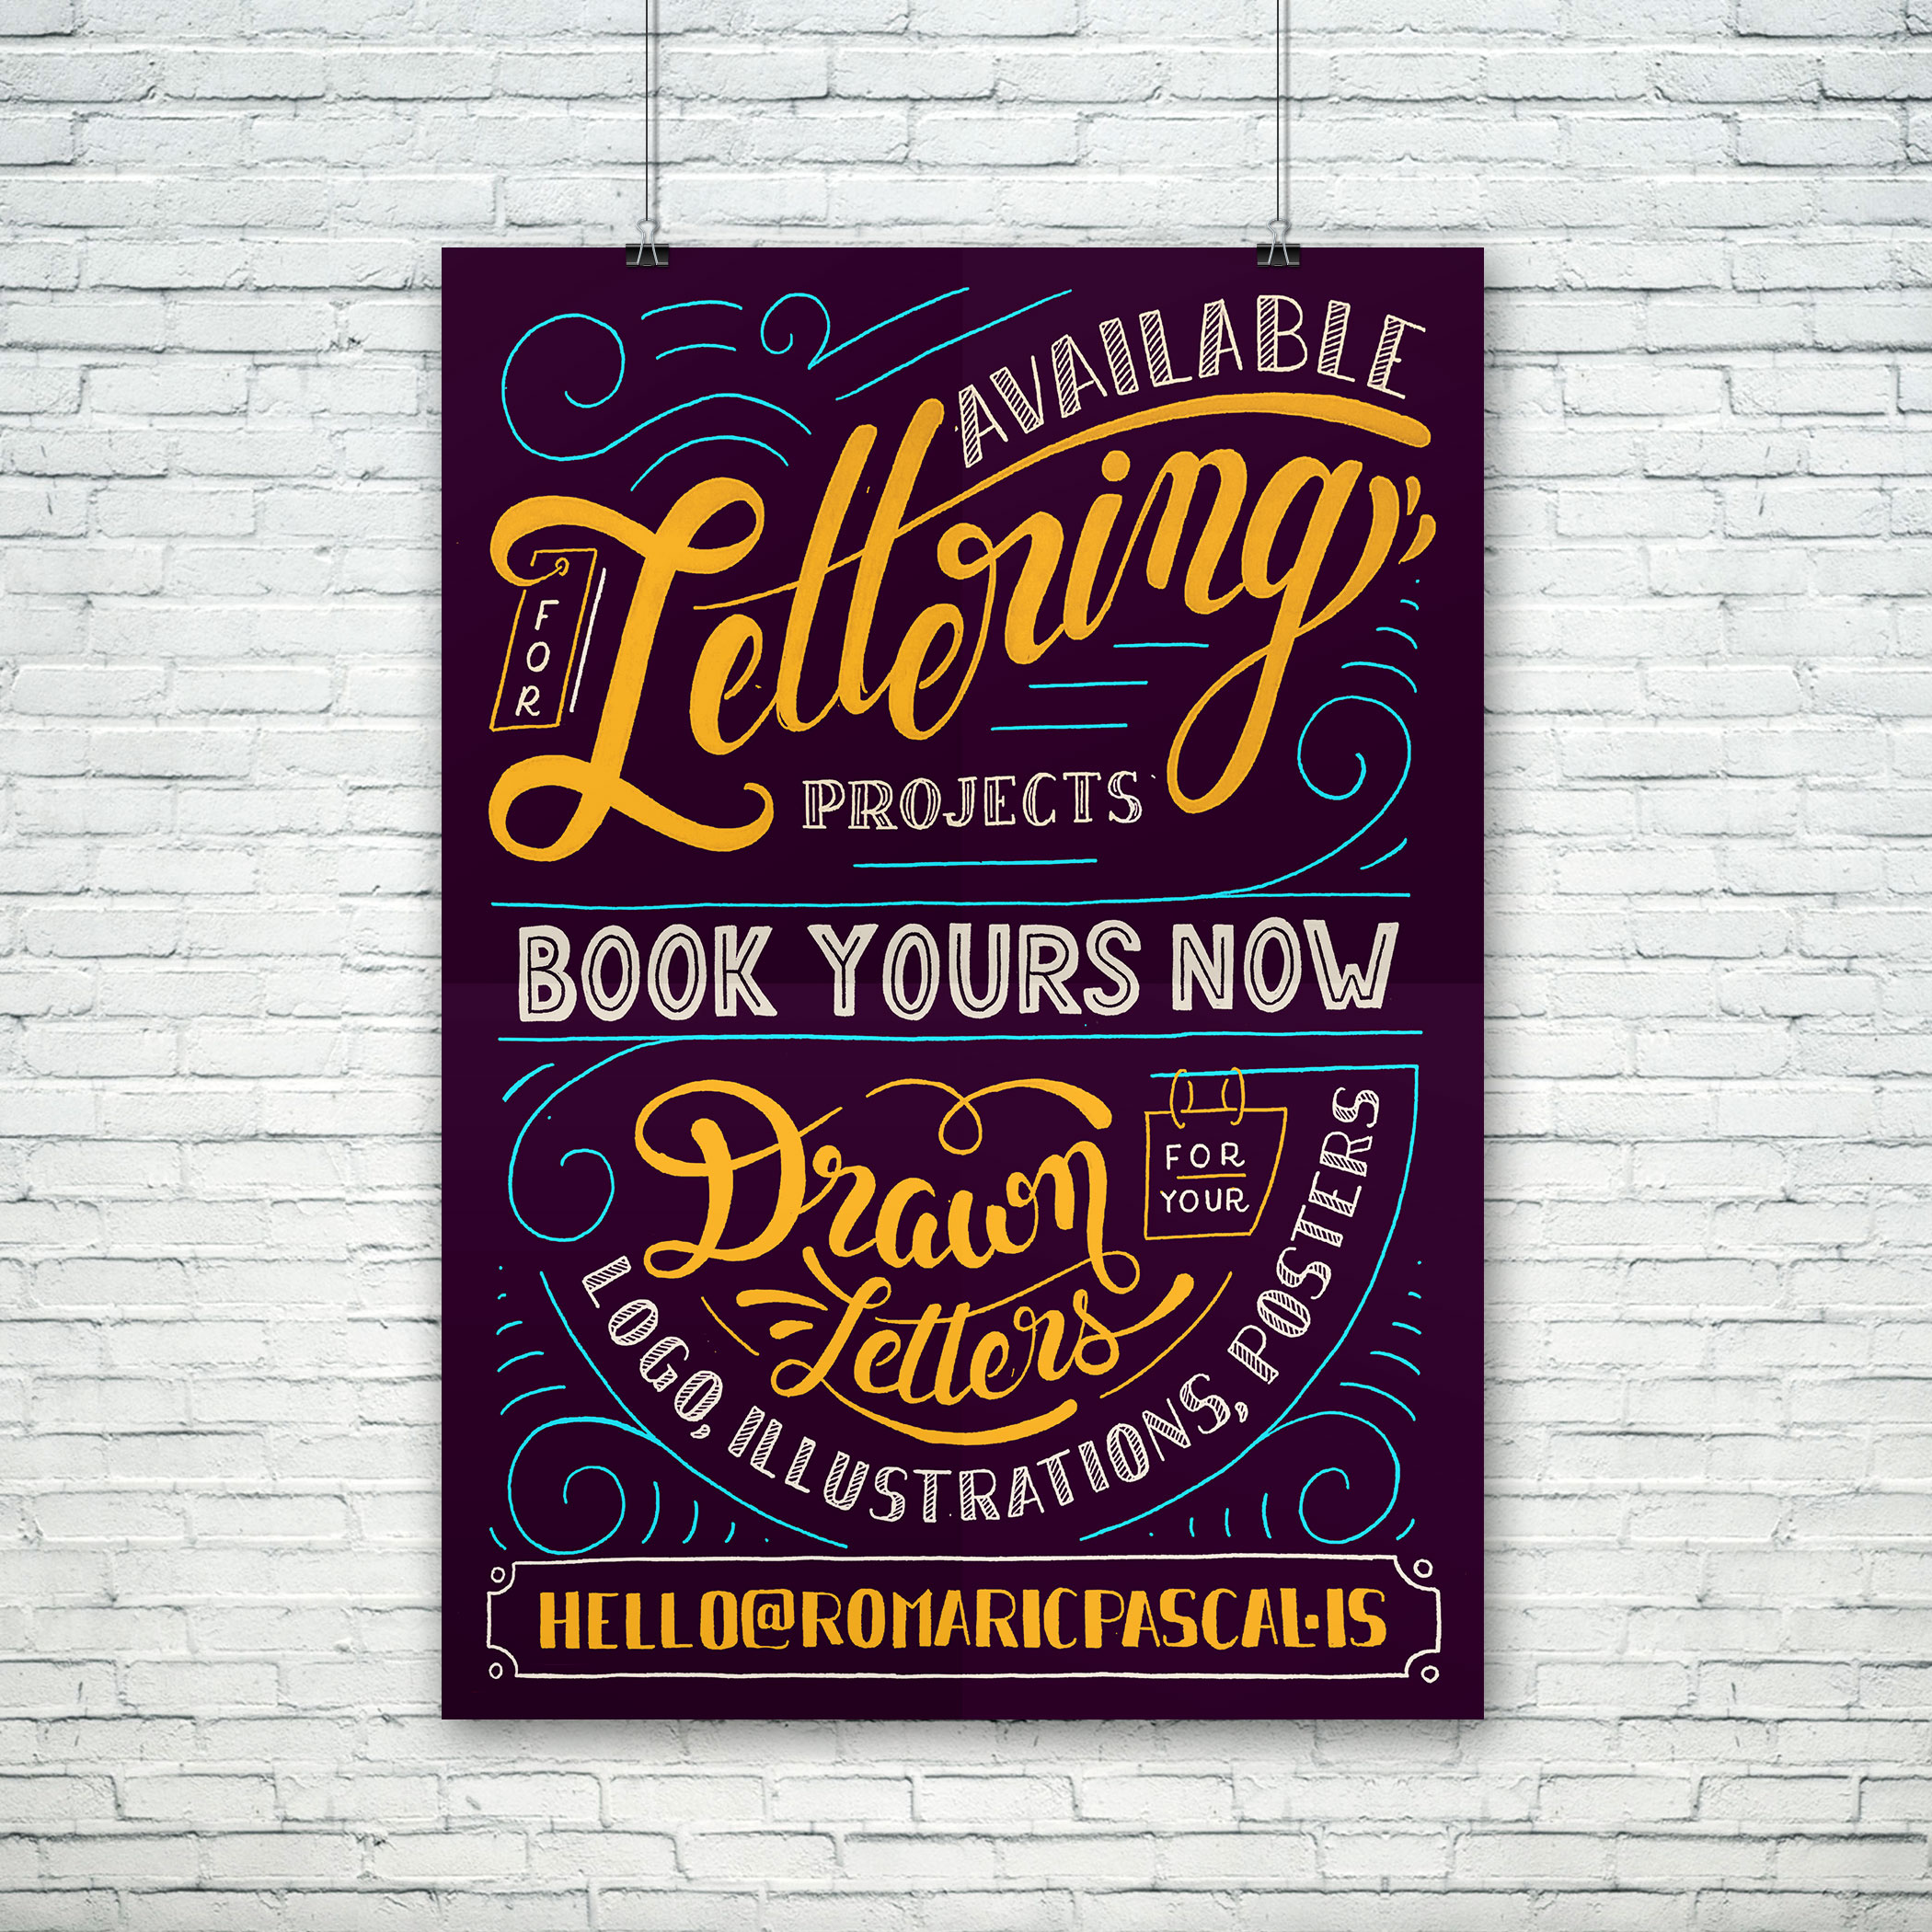 AVAILABLE
FOR
Lettering
PROJECTS
BOOK YOURS NOW
Drawn
Letters
FOR
YOUR
LOGO, ILLUSTRATIONS, POSTERS
HELLO@ROMARICPASCAL.IS